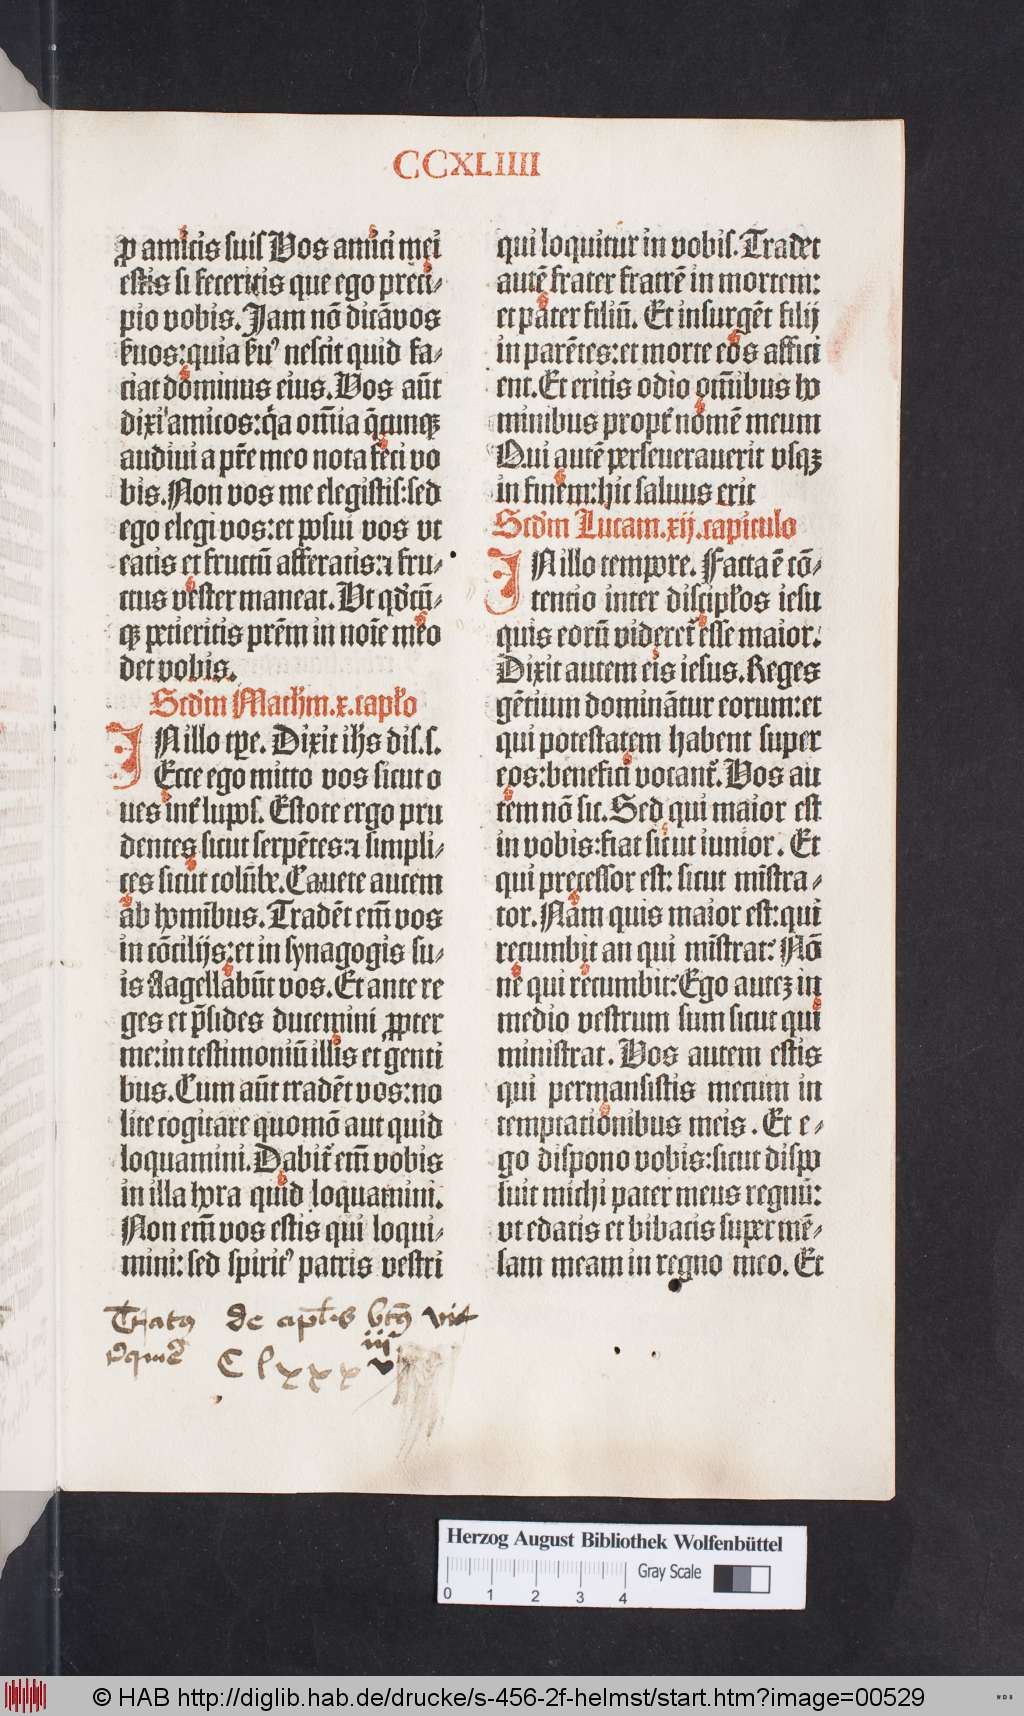 CCXLIIII
ꝓ amicis suis Vos amici mei
estis si feceritis que ego preci⸗
pio vobis. Jam nō dicā vos
ẜuos: quia ẜuꝰ nescit quid fa⸗
ciat dominus eius. Vos aūt
dixi amicos: qͥa om̄ia q̄cunqꝫ
audiui a pr̄e meo nota feci vo
bis. Non vos me elegistis: sed
ego elegi vos: et posui vos vt
eatis et fructū afferatis: ⁊ fru⸗
ctus vester maneat. Vt qd̓cū⸗
qꝫ petieritis prēm in noīe meo
det vobis.
Scd̓m Math̄m. x. capł̓o
IN illo tꝑe. Dixit ih̄s dis. s.
Ecce ego mitto vos sicut o
ues int̓ lupos. Estote ergo pru
dentes sicut serpētes: ⁊ simpli⸗
ces sicut colūbe. Cauete autem
ab homībus. Tradēt em̄ vos
in cōcilijs: et in synagogis su⸗
is flagellabūt vos. Et ante re
ges et p̄sides ducemini ꝓpter
me: in testimoniū illis et genti
bus. Cum aūt tradēt vos: no
lite cogitare quomō aut quid
loquamini. Dabit̓ em̄ vobis
in illa hora quid loquamini.
Non em̄ vos estis qui loqui⸗
mini: sed spiritꝰ patris vestri
qui loquitur in vobis. Tradet
autē frater fratrē in mortem:
et pater filiū. Et insurgēt filij
in parētes: et morte eos affici
ent. Et eritis odio om̄ibus ho
minibus propt̓ nomē meum
Qui autē perseuerauerit vsqꝫ
in finem: hic saluus erit
Scd̓m Lucam. xij. capitulo
IN illo tempore. Facta ē cō⸗
tentio inter discipl̓os iesu
quis eorū videret̓ esse maior.
Dixit autem eis iesus. Reges
gētium dominātur eorum: et
qui potestatem habent super
eos: benefici vocant̓. Vos au
tem nō sic. Sed qui maior est
in vobis: fiat sicut iunior. Et
qui precessor est: sicut mīstra⸗
tor. Nam quis maior est: qui
recumbit an qui mīstrat: Nō
ne qui recumbit: Ego autez in
medio vestrum sum sicut qui
ministrat. Vos autem estis
qui permansistis mecum in
temptationibus meis. Et e⸗
go dispono vobis: sicut dispo
suit michi pater meus regnū:
vt edatis et bibatis super mē⸗
sam meam in regno meo. Et
de apl̓is
C l x x x
Herzog August Bibliothek Wolfenbüttel
Gray Scale
0 1 2 3 4
© HAB http://diglib.hab.de/drucke/s-456-2f-helmst/start.htm?image=00529